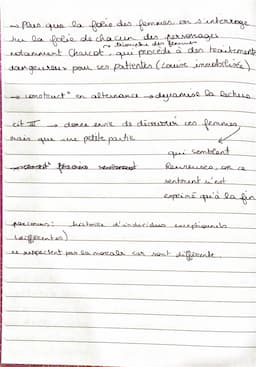 → Plus que la folie des femmes on s'interroge
sur la folie de chacun des personnages
notamment Charcot, qui procède à des traitements
dangereux pour ses patientes (
→ construct° en alternance → dynamise la lecture
cit III → donne envie de découvrir ces femmes
mais que une petite partie
qui semblent
heureuses, or ce
sentiment n'est
exprimé qu'à la fin
parcours : histoire d'individus exceptionnels
(différentes)
ne respectent pas la morale car sont différente